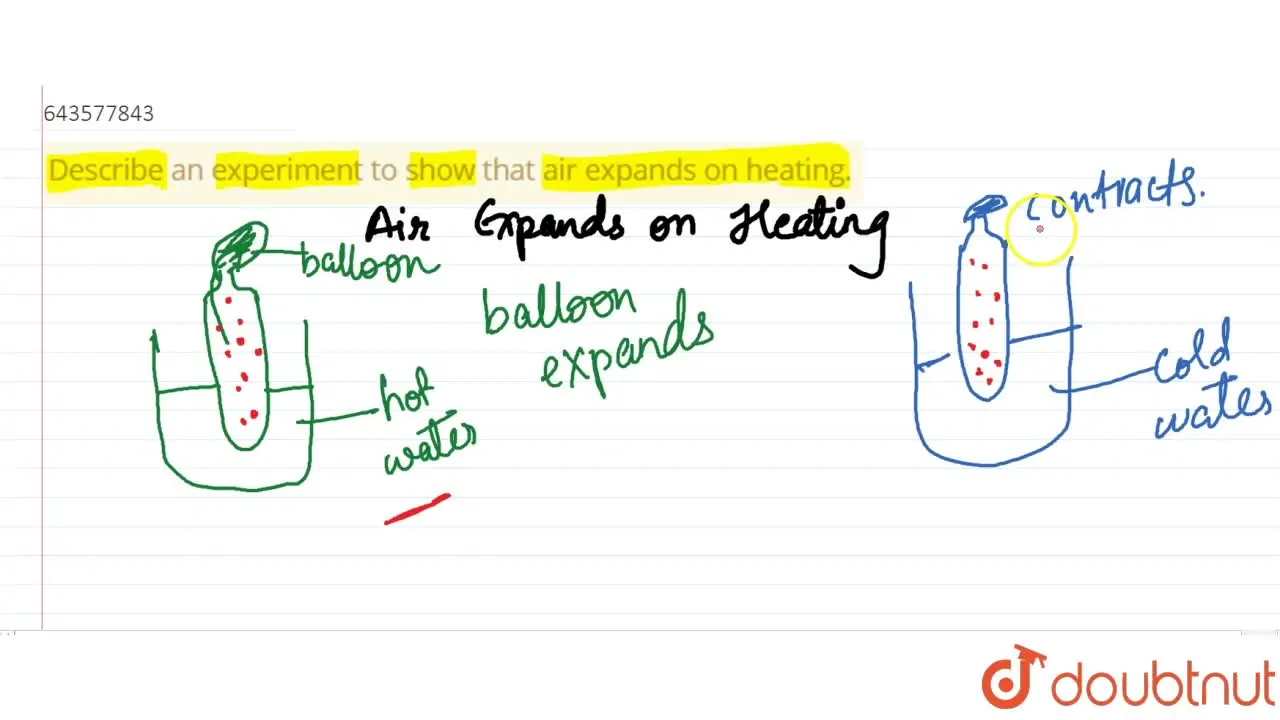 643577843
Describe an experiment to show that air expands on heating.
Air Expands on Heating
balloon
balloon
expands
hot
water
contracts.
cold
water
doubtnut